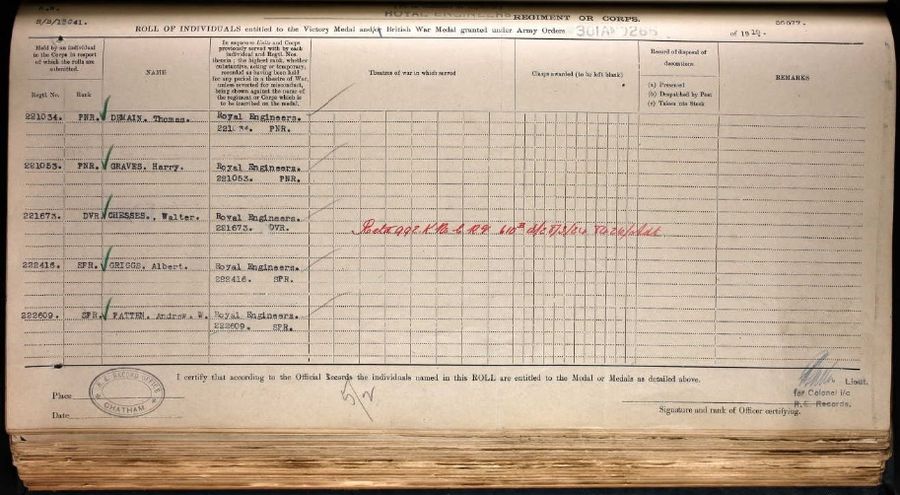 ROYAL ENGINEERS REGIMENT OR CORPS.
ROLL OF INDIVIDUALS entitled to the Victory Medal and/or British War Medal granted under Army Orders
of 1919.
Held by an individual
in the Corps in respect
of which the rolls are
submitted.
Regtl. No. Rank
NAME
In sequence Units and Corps
previously served with by each
individual and Regtl. Nos.
therein; the highest rank, whether
substantive, acting or temporary,
recorded as having been held
for any period in a theatre of War,
unless reverted for misconduct,
being shown against the name of
the regiment or Corps which is
to be inscribed on the medal.
Theatres of war in which served
Clasps awarded (to be left blank)
Record of disposal of
decorations
(a) Presented
(b) Despatched by Post
(c) Taken into Stock
REMARKS
221034. PNR. DEMAIN. Thomas. Royal Engineers.
PNR.
221053. PNR. GRAVES. Harry. Royal Engineers.
221053. PNR.
221673. DVR. CHESSES., Walter. Royal Engineers.
221673. DVR.
222416. SPR. GRIGGS. Albert. Royal Engineers.
222416. SPR.
222609. SPR. PATTEN. Andrew. W. Royal Engineers.
222609. SPR.
I certify that according to the Official Records the individuals named in this ROLL are entitled to the Medal or Medals as detailed above.
Place
R.E. RECORD OFFICE
CHATHAM
Date
Lieut.
for Colonel i/c
R.E. Records.
Signature and rank of Officer certifying.